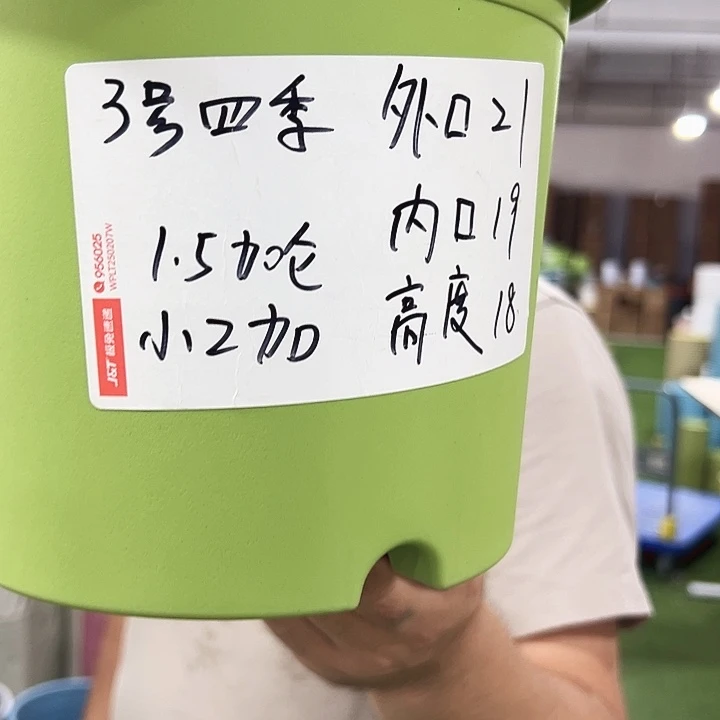 3号四季
1.5加仑
小2加
外口21
内口19
高度18
956025
WFLT250207W
J&T 极兔速递